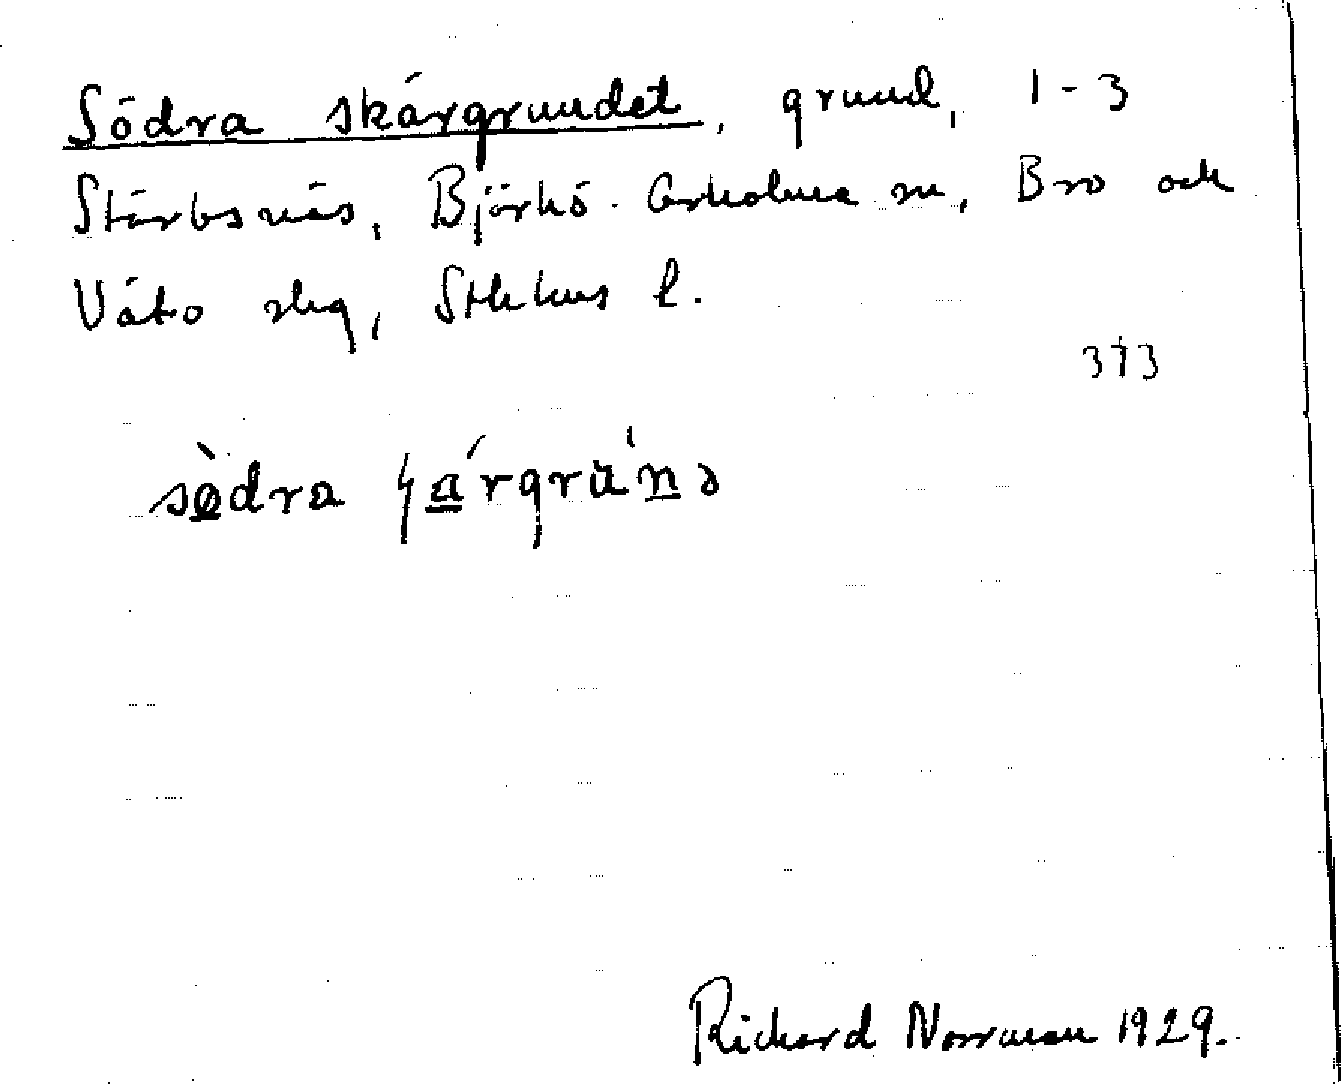 Södra skärgrundet, grund, 1-3
Stärbsnäs, Björkö-Arholma sn, Bro och
Vätö slg, Sthlms l.
373
Richard Norrman 1929.